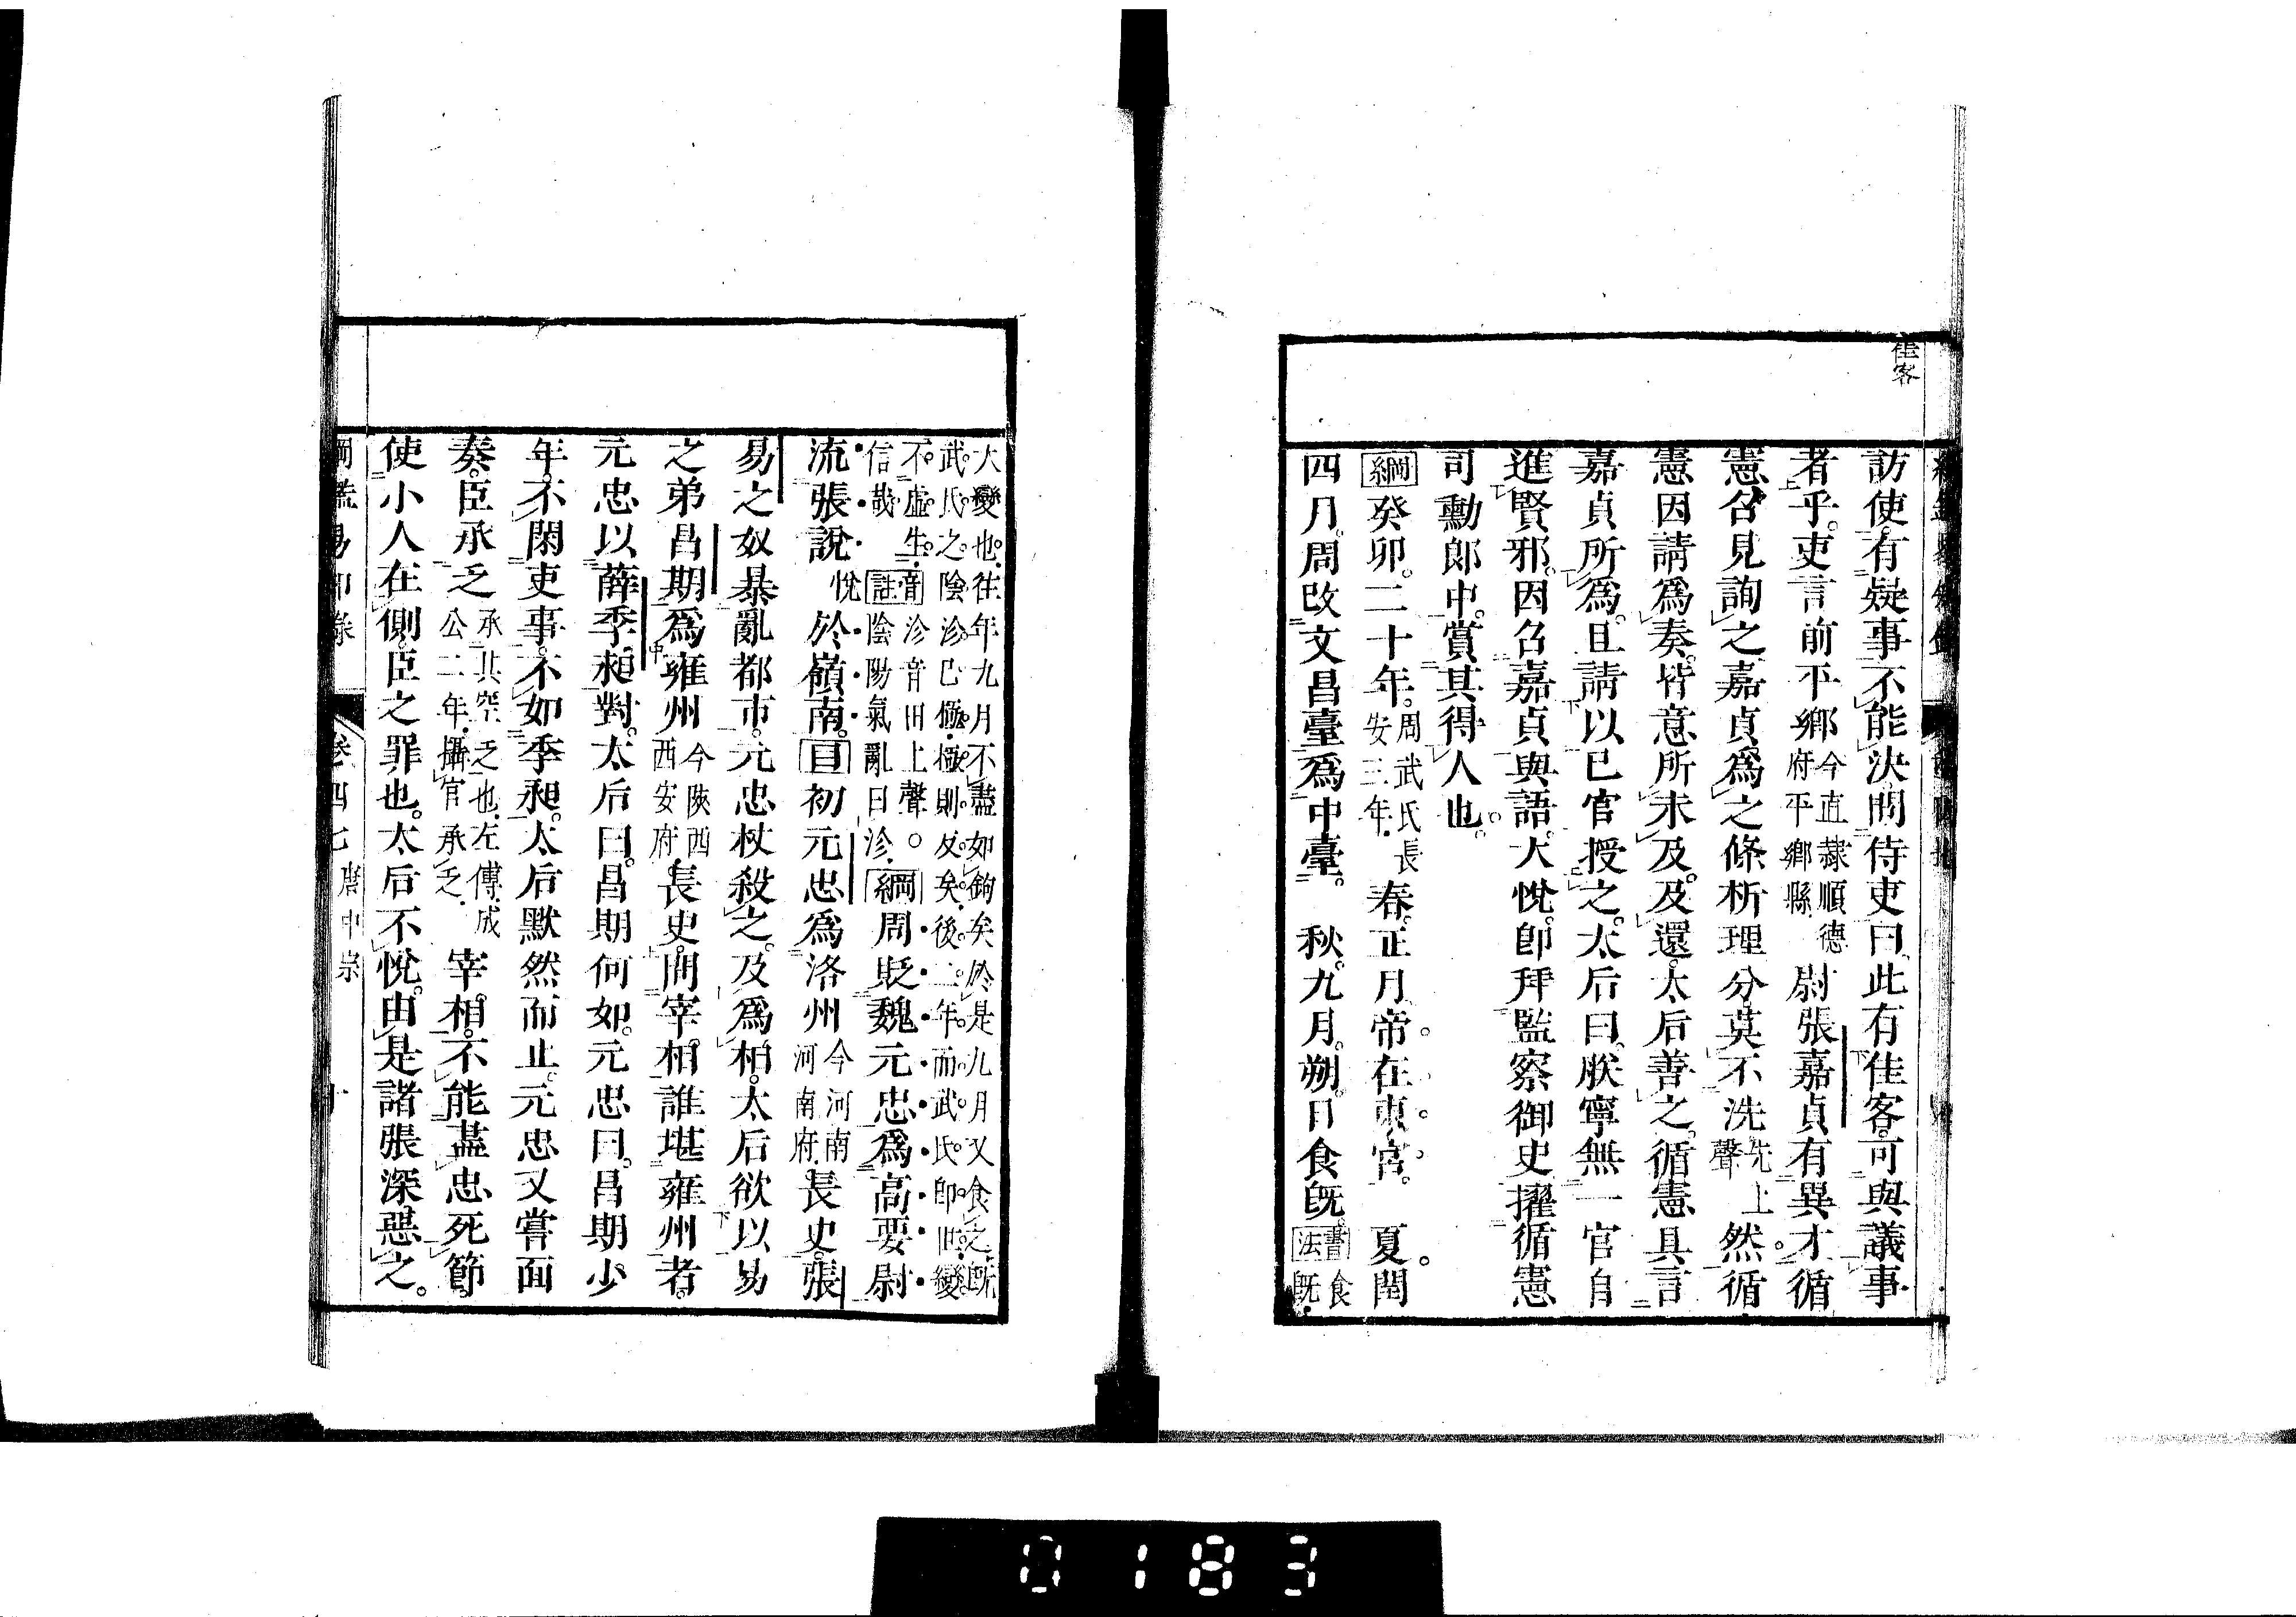 佳客
訪使有疑事不能決問侍吏曰此有佳客可與議事
者乎吏言前平鄉今直隸順德府平鄉縣尉張嘉貞有異才循
憲召見詢之嘉貞爲之條析理分莫不洗洗上聲然循
憲因請爲奏皆意所未及及還太后善之循憲具言
嘉貞所爲且請以己官授之太后曰朕寧無一官自
進賢邪因召嘉貞與語大悅卽拜監察御史擢循憲
司勳郎中賞其得人也
綱癸卯二十年周武氏長安三年春正月帝在東宮 夏閏
四月周改文昌臺爲中臺 秋九月朔日食旣書法食旣
大變也往年九月不盡如鉤矣於是九月又食之旣
武氏之陰沴已極極則反矣後二年而武氏卽世變
不虛生音沴音田上聲○
信哉註陰陽氣亂曰沴綱周貶魏元忠爲高要尉
流張說悅於嶺南目初元忠爲洛州今河南河南府長史張
易之奴暴亂都市元忠杖殺之及爲相太后欲以易
之弟昌期爲雍州今陝西西安府長史問宰相誰堪雍州者
元忠以薛季昶對太后曰昌期何如元忠曰昌期少
年不閑吏事不如季昶太后默然而止元忠又嘗面
奏臣承乏承其空乏也左傳成公二年攝官承乏宰相不能盡忠死節
使小人在側臣之罪也太后不悅由是諸張深惡之
綱鑑易知錄 卷四七 唐中宗 十
0183